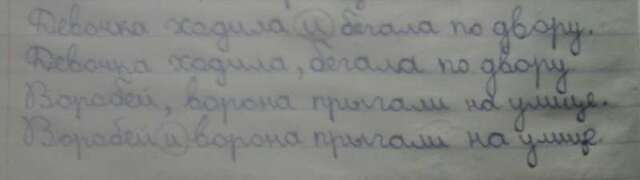 Девочка ходила и бегала по двору.
Девочка ходила, бегала по двору
Воробей, ворона прыгали на улице.
Воробей и ворона прыгали на улице.